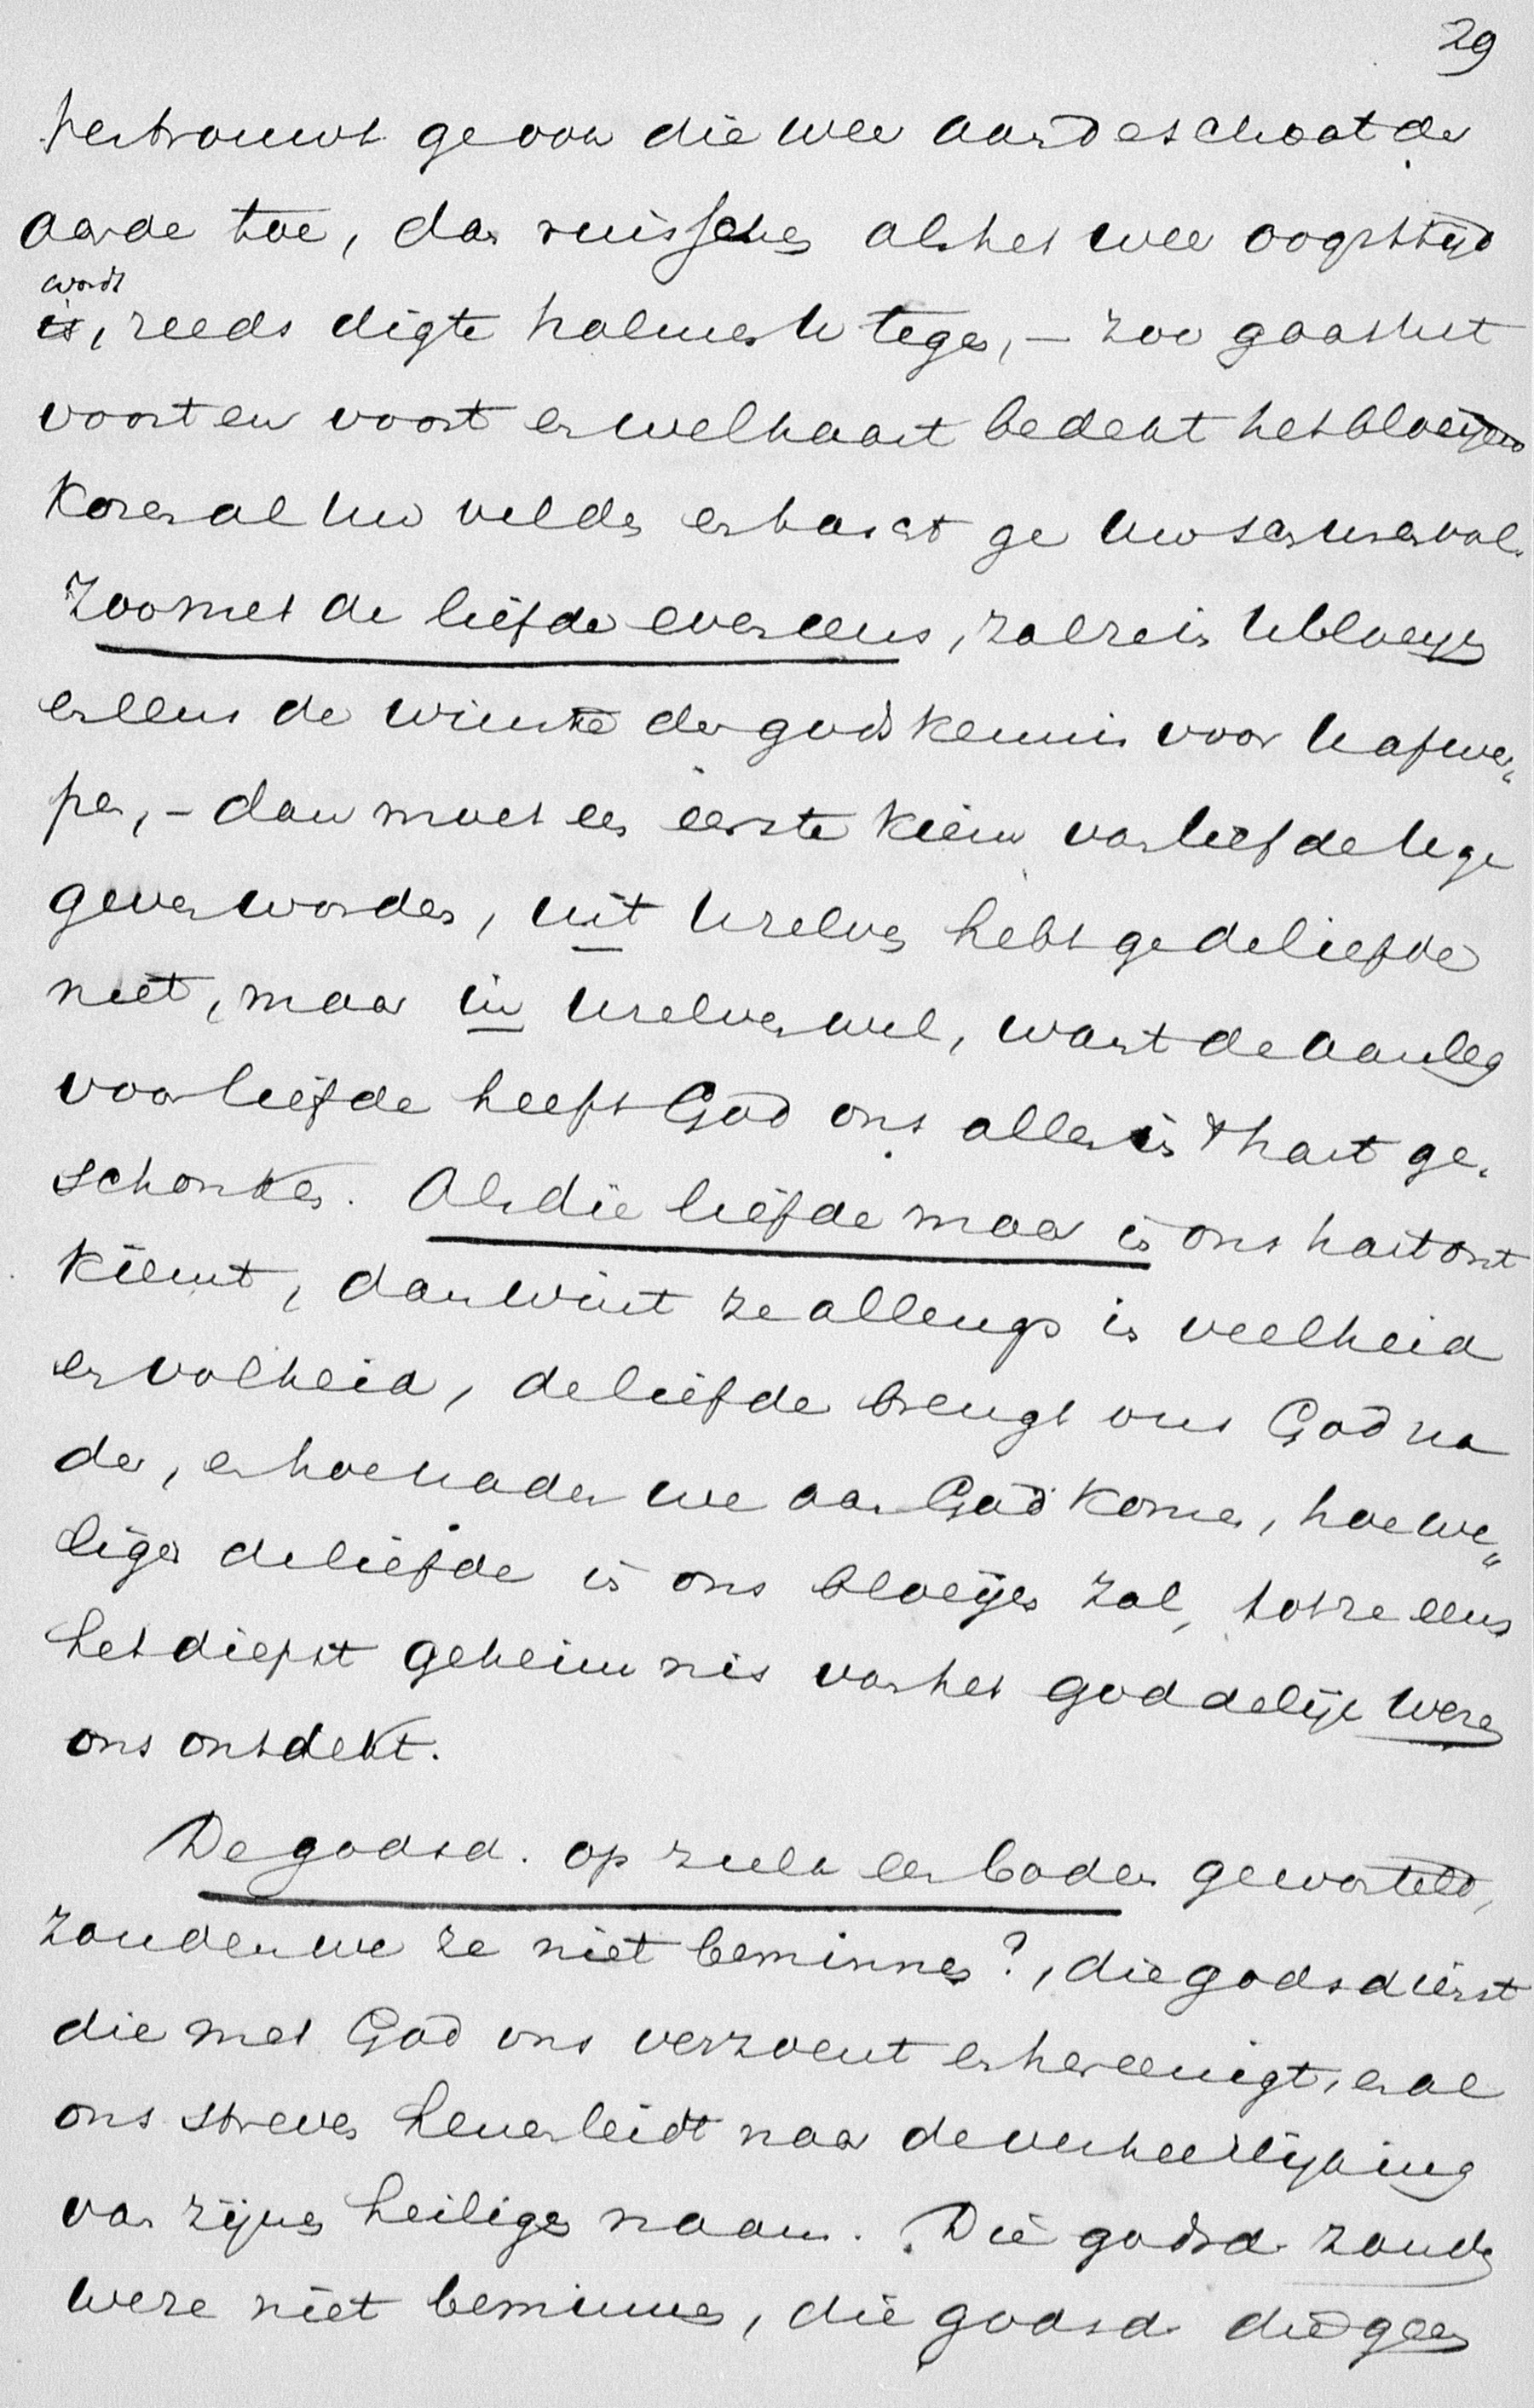 29
vertrouwt ge ook die weer aan de schoot der
aarde toe, dan ruisschen als het weer oogsttijd
wordt
is, reeds digte halmen U tegen, – zoo gaat het
voort en voort en welhaast bedekt het bloeijend
koren al Uw velden en barst ge Uw schuren vol.
Zoo met de liefde eveneens, zal ze in U bloeyen
en eens de winste der godskennis voor U afwer„
pen, – dan moet een eerste kiem van liefde U ge
geven worden, uit U zelven hebt ge de liefde
niet, maar in U zelven wel, want de aanleg
voor liefde heeft God ons allen in 't hart ge-
schonken. Als die liefde maar in ons hart ont
kiemt, dan wint ze allengs in veelheid
en volheid, de liefde brengt ons God na
der, en hoe nader we aan God komen, hoe we„
liger de liefde in ons bloeijen zal, tot ze eens
het diepst geheimnis van het goddelijk Wezen
ons ontdekt.
De godsd. op zulk een bodem geworteld,
zouden we ze niet beminnen?, die godsdienst
die met God ons verzoent en hereenigt, en al
ons streven henenleidt naar de verheerlijking
van zijnen heiligen naam. Die godsd. zouden
we ze niet beminnen, die godsd. die geen